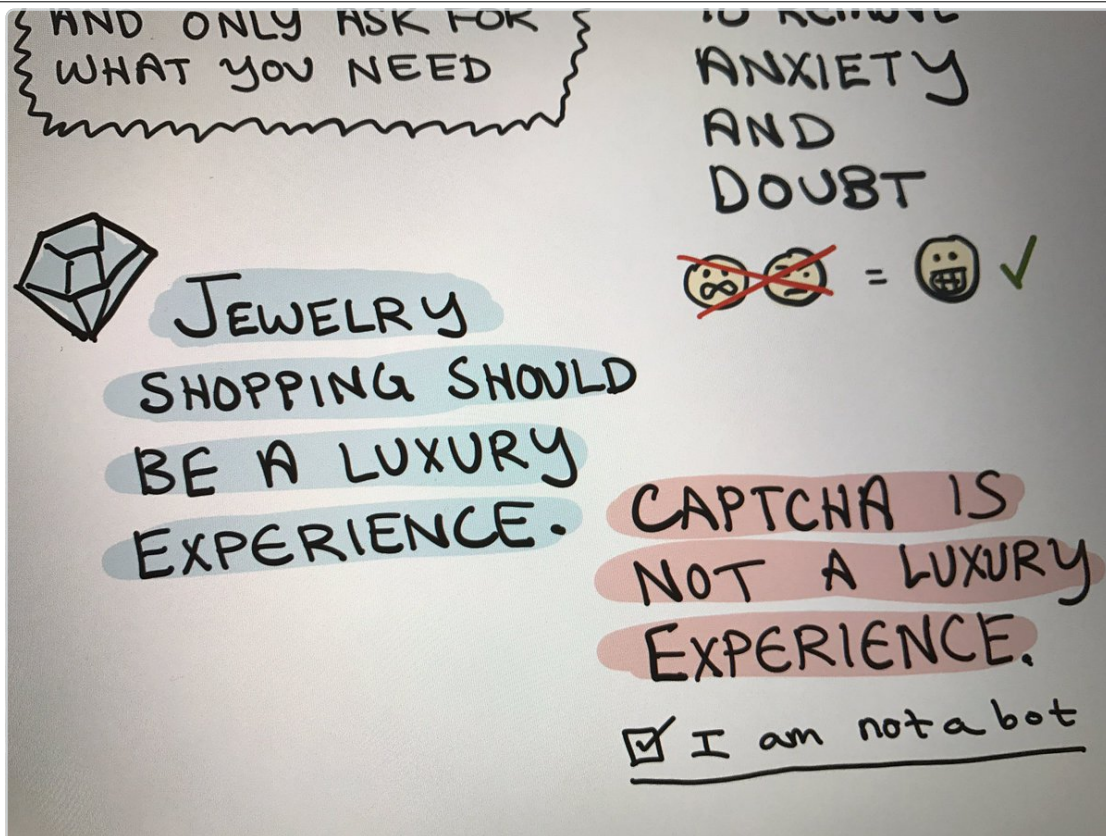 AND ONLY ASK FOR
WHAT YOU NEED
TO REMOVE
ANXIETY
AND
DOUBT
=
JEWELRY
SHOPPING SHOULD
BE A LUXURY
EXPERIENCE.
CAPTCHA IS
NOT A LUXURY
EXPERIENCE.
I am not a bot